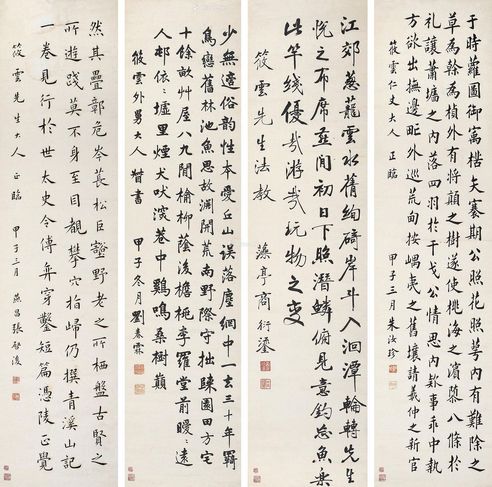 于時羅圖御寓楛矢騫期公照花照萼內有難除之
草為榦為楨外有將顛之樹遂使桃海之濱藜八條於
禮讓蕭墻之內落四羽於干戈公情思內欵事乖中執
方欲出撫邊甿外巡荒甸按嵎夷之舊壤請羲仲之新官
筱雲仁丈大人正臨 甲子三月朱汝珍
江郊蔥蘢雲水舊絢碕岸斗入洄潭輪轉先生
悅之布席並閒初日下照潛鱗俯見意釣忘魚樂
此竿綫優哉游哉玩物之變
筱雲先生法教 藻亭商衍鎏
少無適俗韵性本愛丘山误落塵網中一去三十年羈
鳥戀舊林池魚思故淵開荒南野際守拙歸園田方宅
十餘畝艸屋八九間榆柳蔭後檐桃李羅堂前曖曖遠
人邨依依墟里煙犬吠深巷中鷄鳴桑樹巔
筱雲外舅大人督書 甲子冬月劉春霖
然其疊鄣危岑萇松巨壑野老之所栖盤古賢之
所遊踐莫不身至目覩攀穴指歸仍撰青溪山記
一卷見行於世太史令傅弈穿鑿短篇憑陵正覺
筱雲先生大人正臨 甲子三月 張啟後